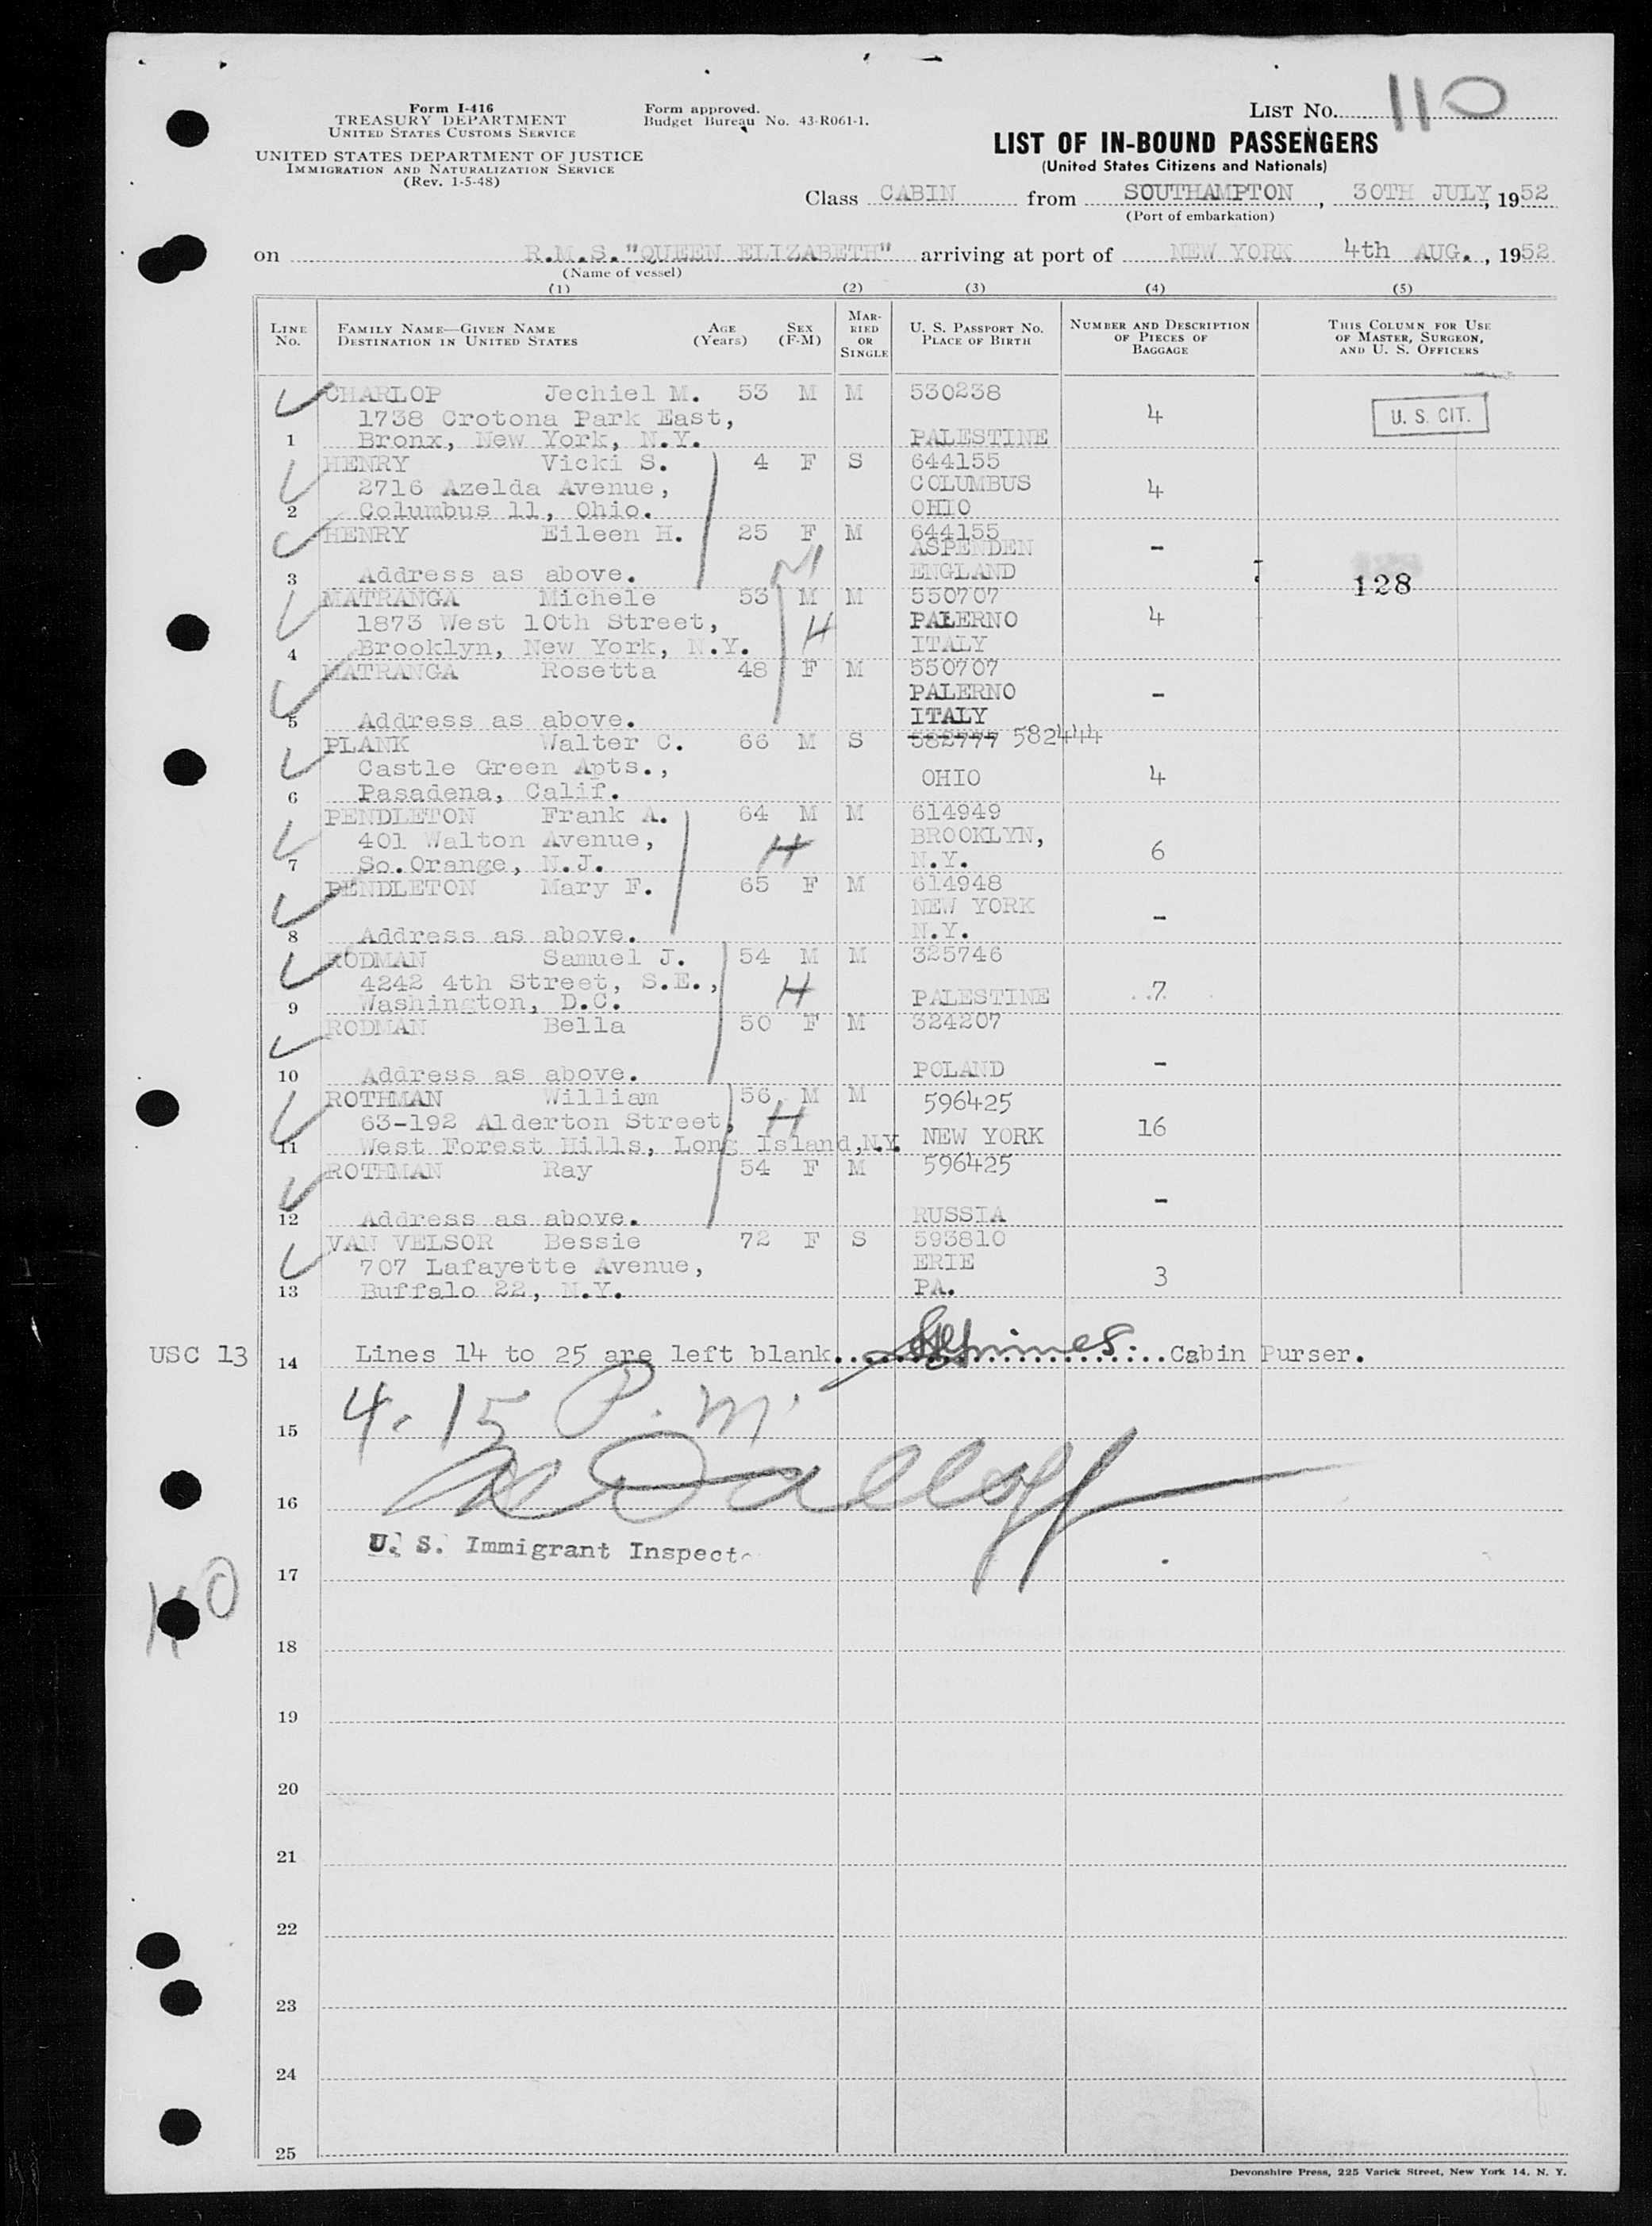 Form I-416
TREASURY DEPARTMENT
UNITED STATES CUSTOMS SERVICE
UNITED STATES DEPARTMENT OF JUSTICE
IMMIGRATION AND NATURALIZATION SERVICE
(Rev. 1-5-48)
Form approved.
Budget Bureau No. 43-R061-1.
LIST NO. 110
LIST OF IN-BOUND PASSENGERS
(United States Citizens and Nationals)
Class CABIN from SOUTHAMPTON, 30TH JULY, 1952
(Port of embarkation)
on R.M.S. "QUEEN ELIZABETH" arriving at port of NEW YORK 4th AUG., 1952
(Name of vessel)
(1) (2) (3) (4) (5)
LINE NO. FAMILY NAME—GIVEN NAME DESTINATION IN UNITED STATES AGE (Years) SEX (F-M) MARRIED OR SINGLE U. S. PASSPORT NO. PLACE OF BIRTH NUMBER AND DESCRIPTION OF PIECES OF BAGGAGE THIS COLUMN FOR USE OF MASTER, SURGEON, AND U. S. OFFICERS
CHARLOP Jechiel M. 53 M M 530238
1738 Crotona Park East, 4 U. S. CIT.
1 Bronx, New York, N.Y. PALESTINE
HENRY Vicki S. 4 F S 644155
2716 Azelda Avenue, COLUMBUS 4
2 Columbus 11, Ohio. OHIO
HENRY Eileen H. 25 F M 644155
ASPENDEN -
3 Address as above. ENGLAND 128
MATRANGA Michele 53 M M 550707
1873 West 10th Street, H PALERNO 4
4 Brooklyn, New York, N.Y. ITALY
MATRANGA Rosetta 48 F M 550707
PALERNO -
5 Address as above. ITALY
PLANK Walter C. 66 M S 582777 582444
Castle Green Apts., OHIO 4
6 Pasadena, Calif.
PENDLETON Frank A. 64 M M 614949
401 Walton Avenue, H BROOKLYN, 6
7 So.Orange, N.J. N.Y.
PENDLETON Mary F. 65 F M 614948
NEW YORK -
8 Address as above. N.Y.
RODMAN Samuel J. 54 M M 325746
4242 4th Street, S.E., H 7
9 Washington, D.C. PALESTINE
RODMAN Bella 50 F M 324207
10 Address as above. POLAND -
ROTHMAN William 56 M M 596425
63-192 Alderton Street, H 16
11 West Forest Hills, Long Island,N.Y. NEW YORK
ROTHMAN Ray 54 F M 596425
-
12 Address as above. RUSSIA
VAN VELSOR Bessie 72 F S 593810
707 Lafayette Avenue, ERIE 3
13 Buffalo 22, N.Y. PA.
USC 13 14 Lines 14 to 25 are left blank. Cabin Purser.
4.15 P.M.
15
16
U. S. Immigrant Inspect
17
18
19
20
21
22
23
24
25
Devonshire Press, 225 Varick Street, New York 14, N. Y.